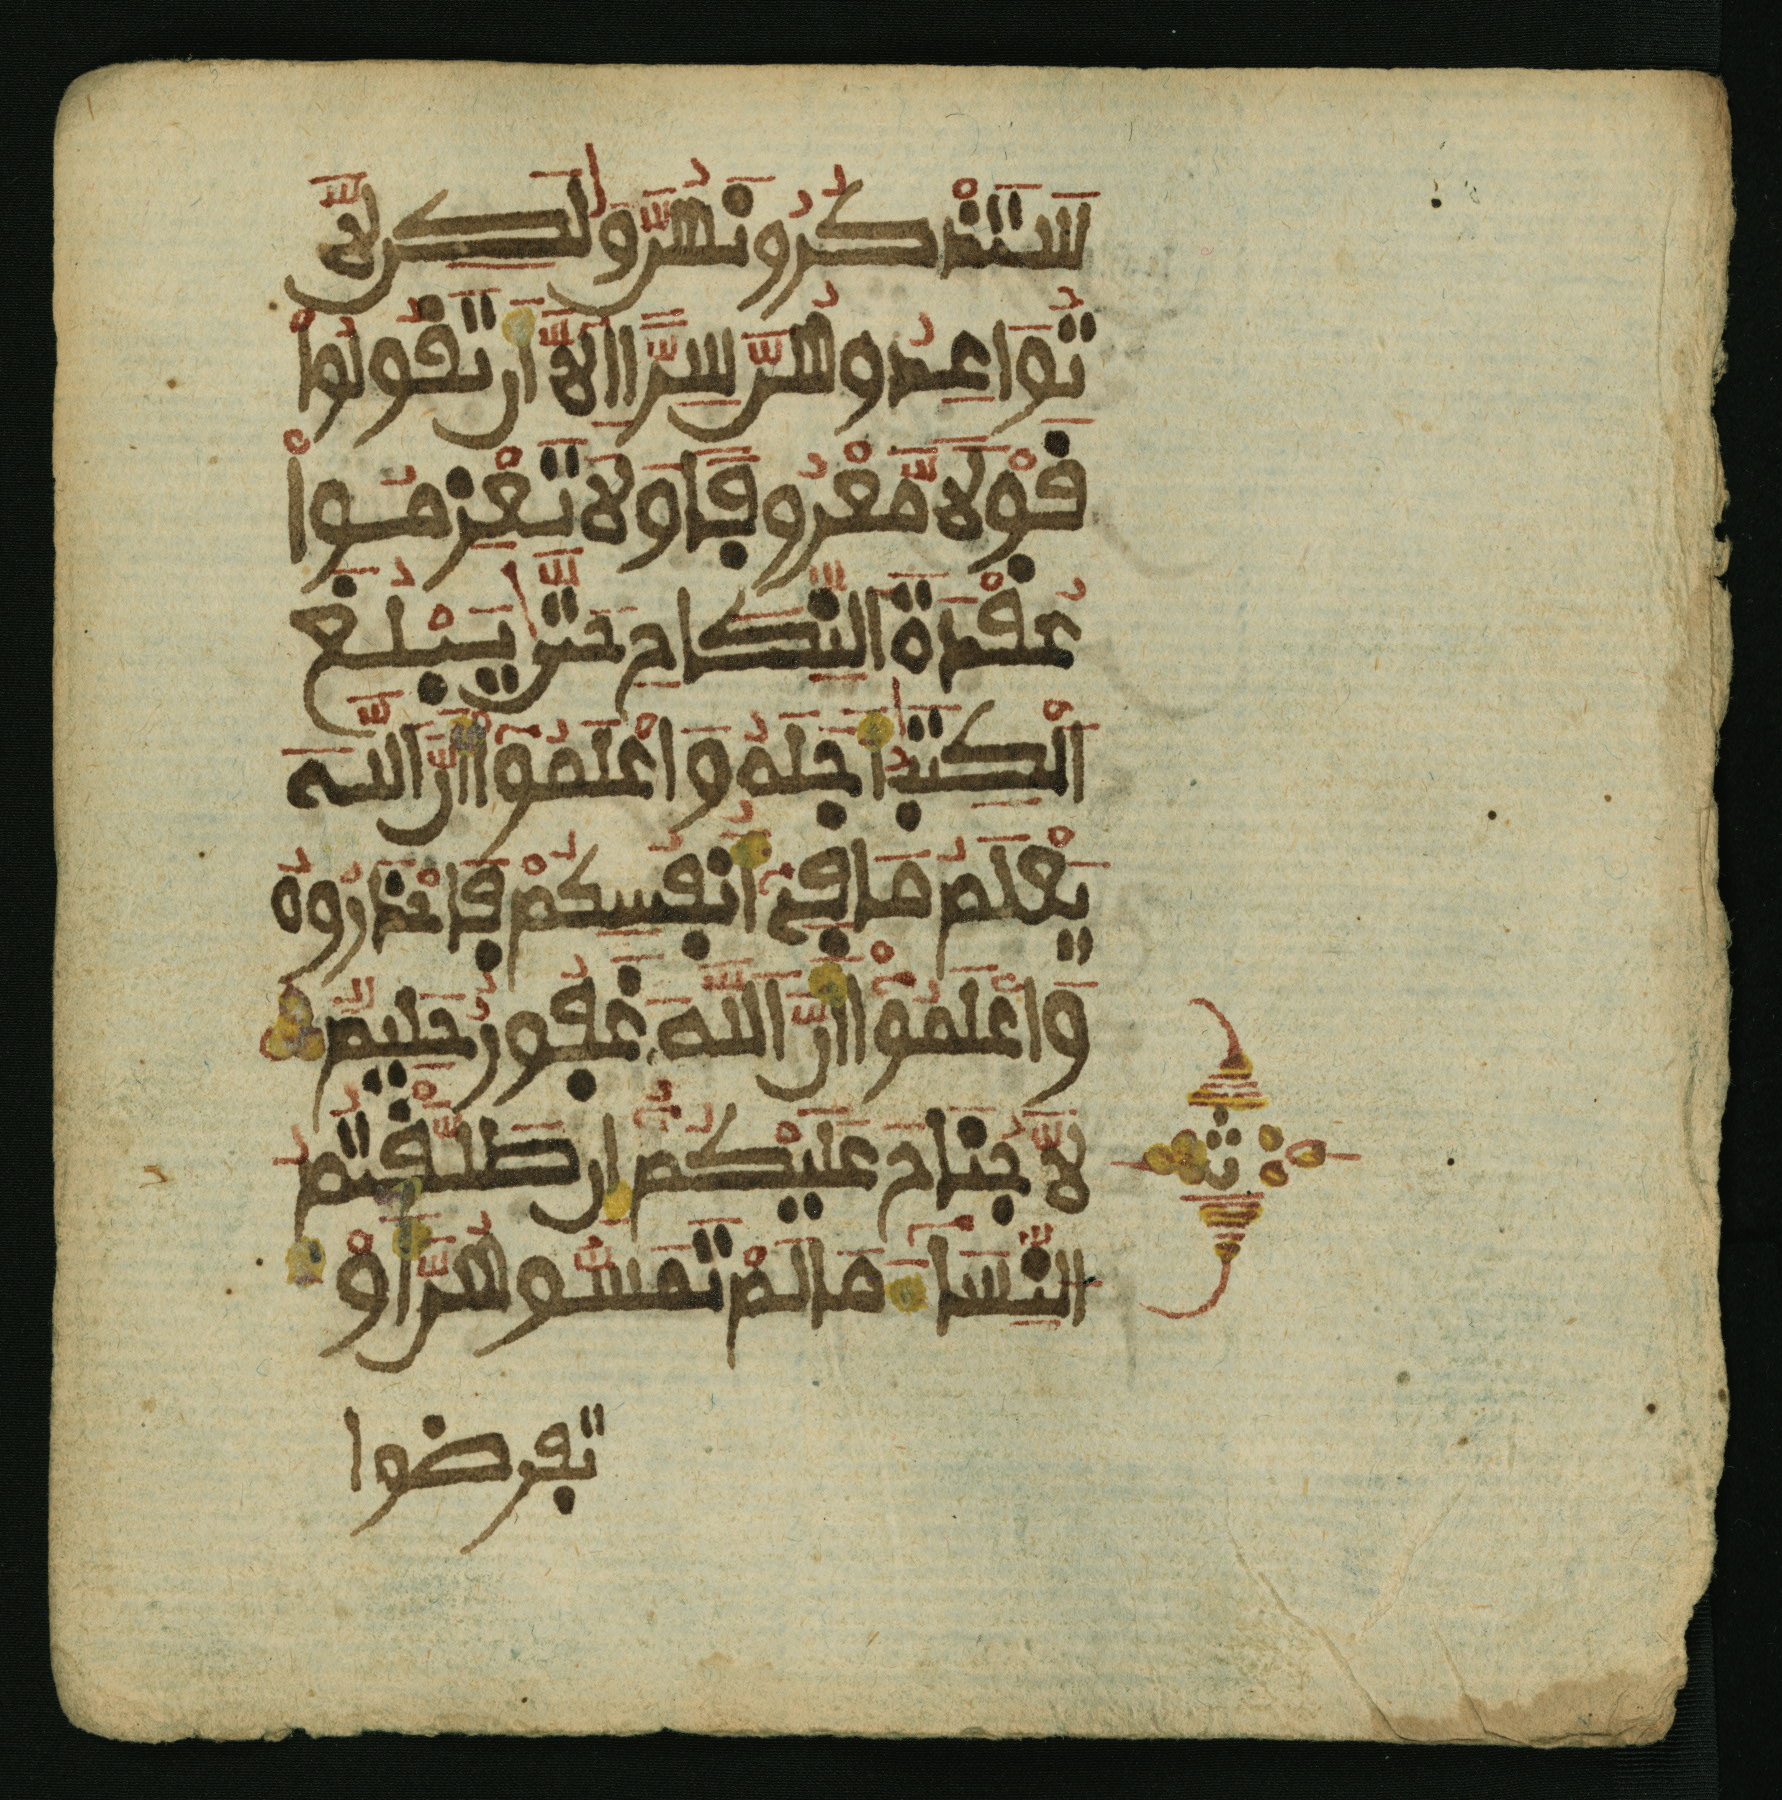 سَتَذْكُرُونَهُنَّ وَلَٰكِن لَّا
تُوَاعِدُوهُنَّ سِرًّا اِلَّا أَن تَقُولُواْ
قَوْلًا مَّعْرُوفًا وَلَا تَعْزِمُواْ
عُقْدَةَ اَلنِّكَاحِ حَتَّىٰ يَبْلُغَ
اَلْكِتَٰبُ أَجَلَهُ وَاعْلَمُوٓاْ أَنَّ اَللَّهَ
يَعْلَمُ مَا فِےٓ أَنفُسِكُمْ فَاحْذَرُوهُ
وَاعْلَمُوٓاْ أَنَّ اَللَّهَ غَفُورٌ حَلِيمٌ
لَّا جُنَاحَ عَلَيْكُمُۥٓ إِن طَلَّقْتُمُ
اُلنِّسَآءَ مَا لَمْ تَمَسُّوهُنَّ أَوْ
ث
تفرضوا